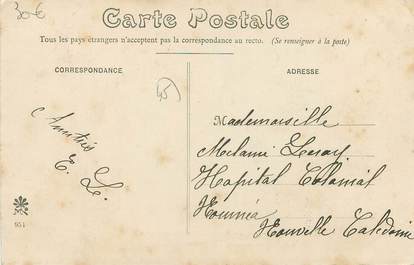 30€
Carte Postale
Tous les pays étrangers n'acceptent pas la correspondance au recto. (Se renseigner à la poste)
CORRESPONDANCE
ADRESSE
Amitiés
E. L.
Mademoiselle
Mélanie Leroy
Hopital Colonial
Nouméa
Nouvelle Calédonie